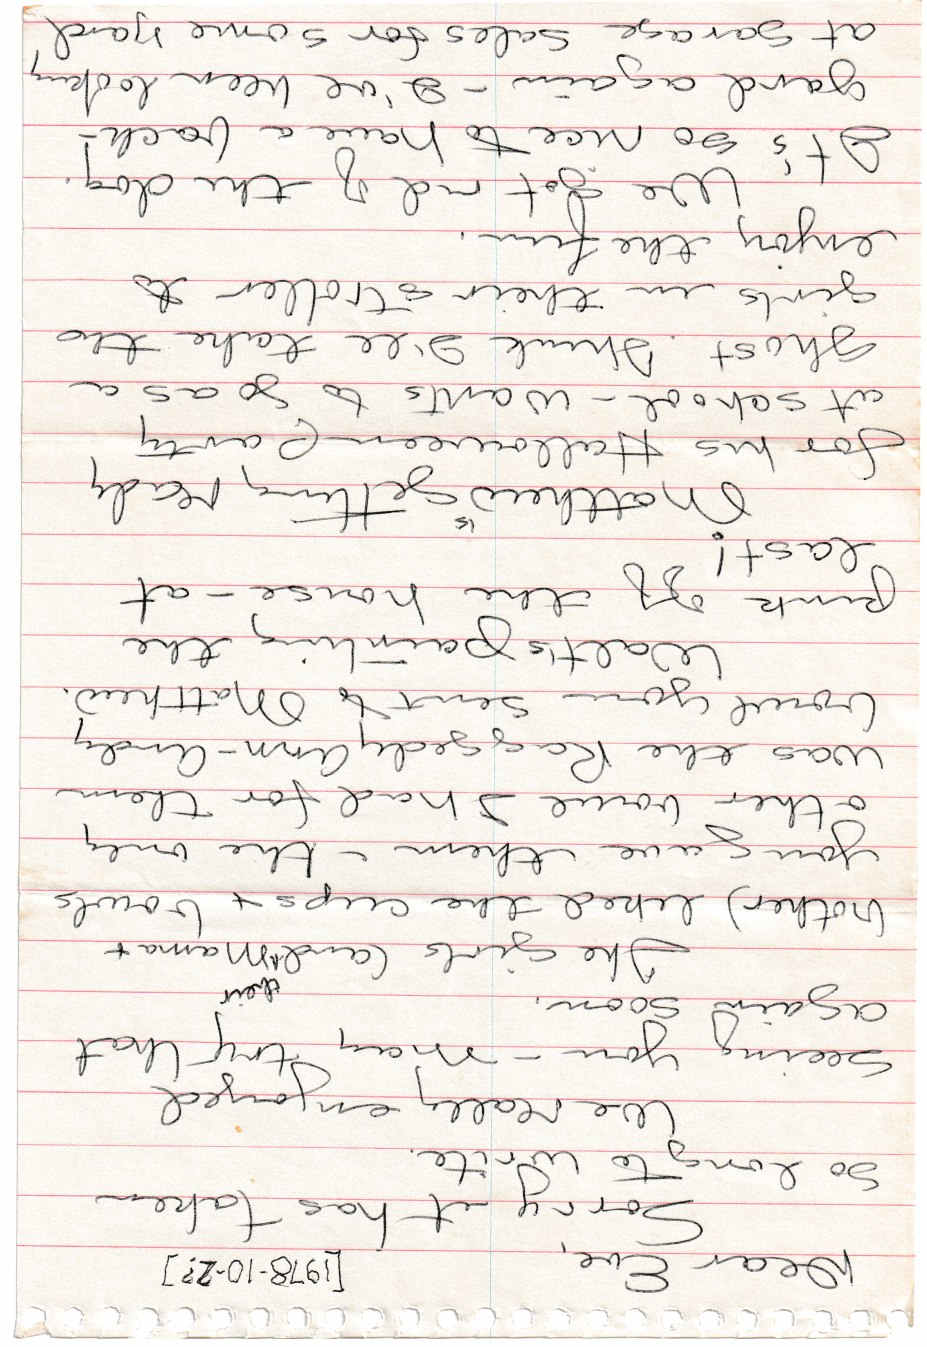 Dear Eve, [1978-10-2?]
Sorry it has taken
so long to write.
We really enjoyed
seeing you - may try that
again soon.
The girls (and their Mama +
brother) liked the cups + bowls
you gave them - the only
other bowl I had for them
was the Raggedy Ann-Andy
bowl you sent to Matthew.
Walt's painting the
pink off the house - at
last!
Matthew is getting ready
for his Halloween Party
at school - wants to go as a
ghost. Think I'll take the
girls in their stroller to
enjoy the fun.
We got rid of the dog.
It's so nice to have a back-
yard again - I've been looking
at garage sales for some yard